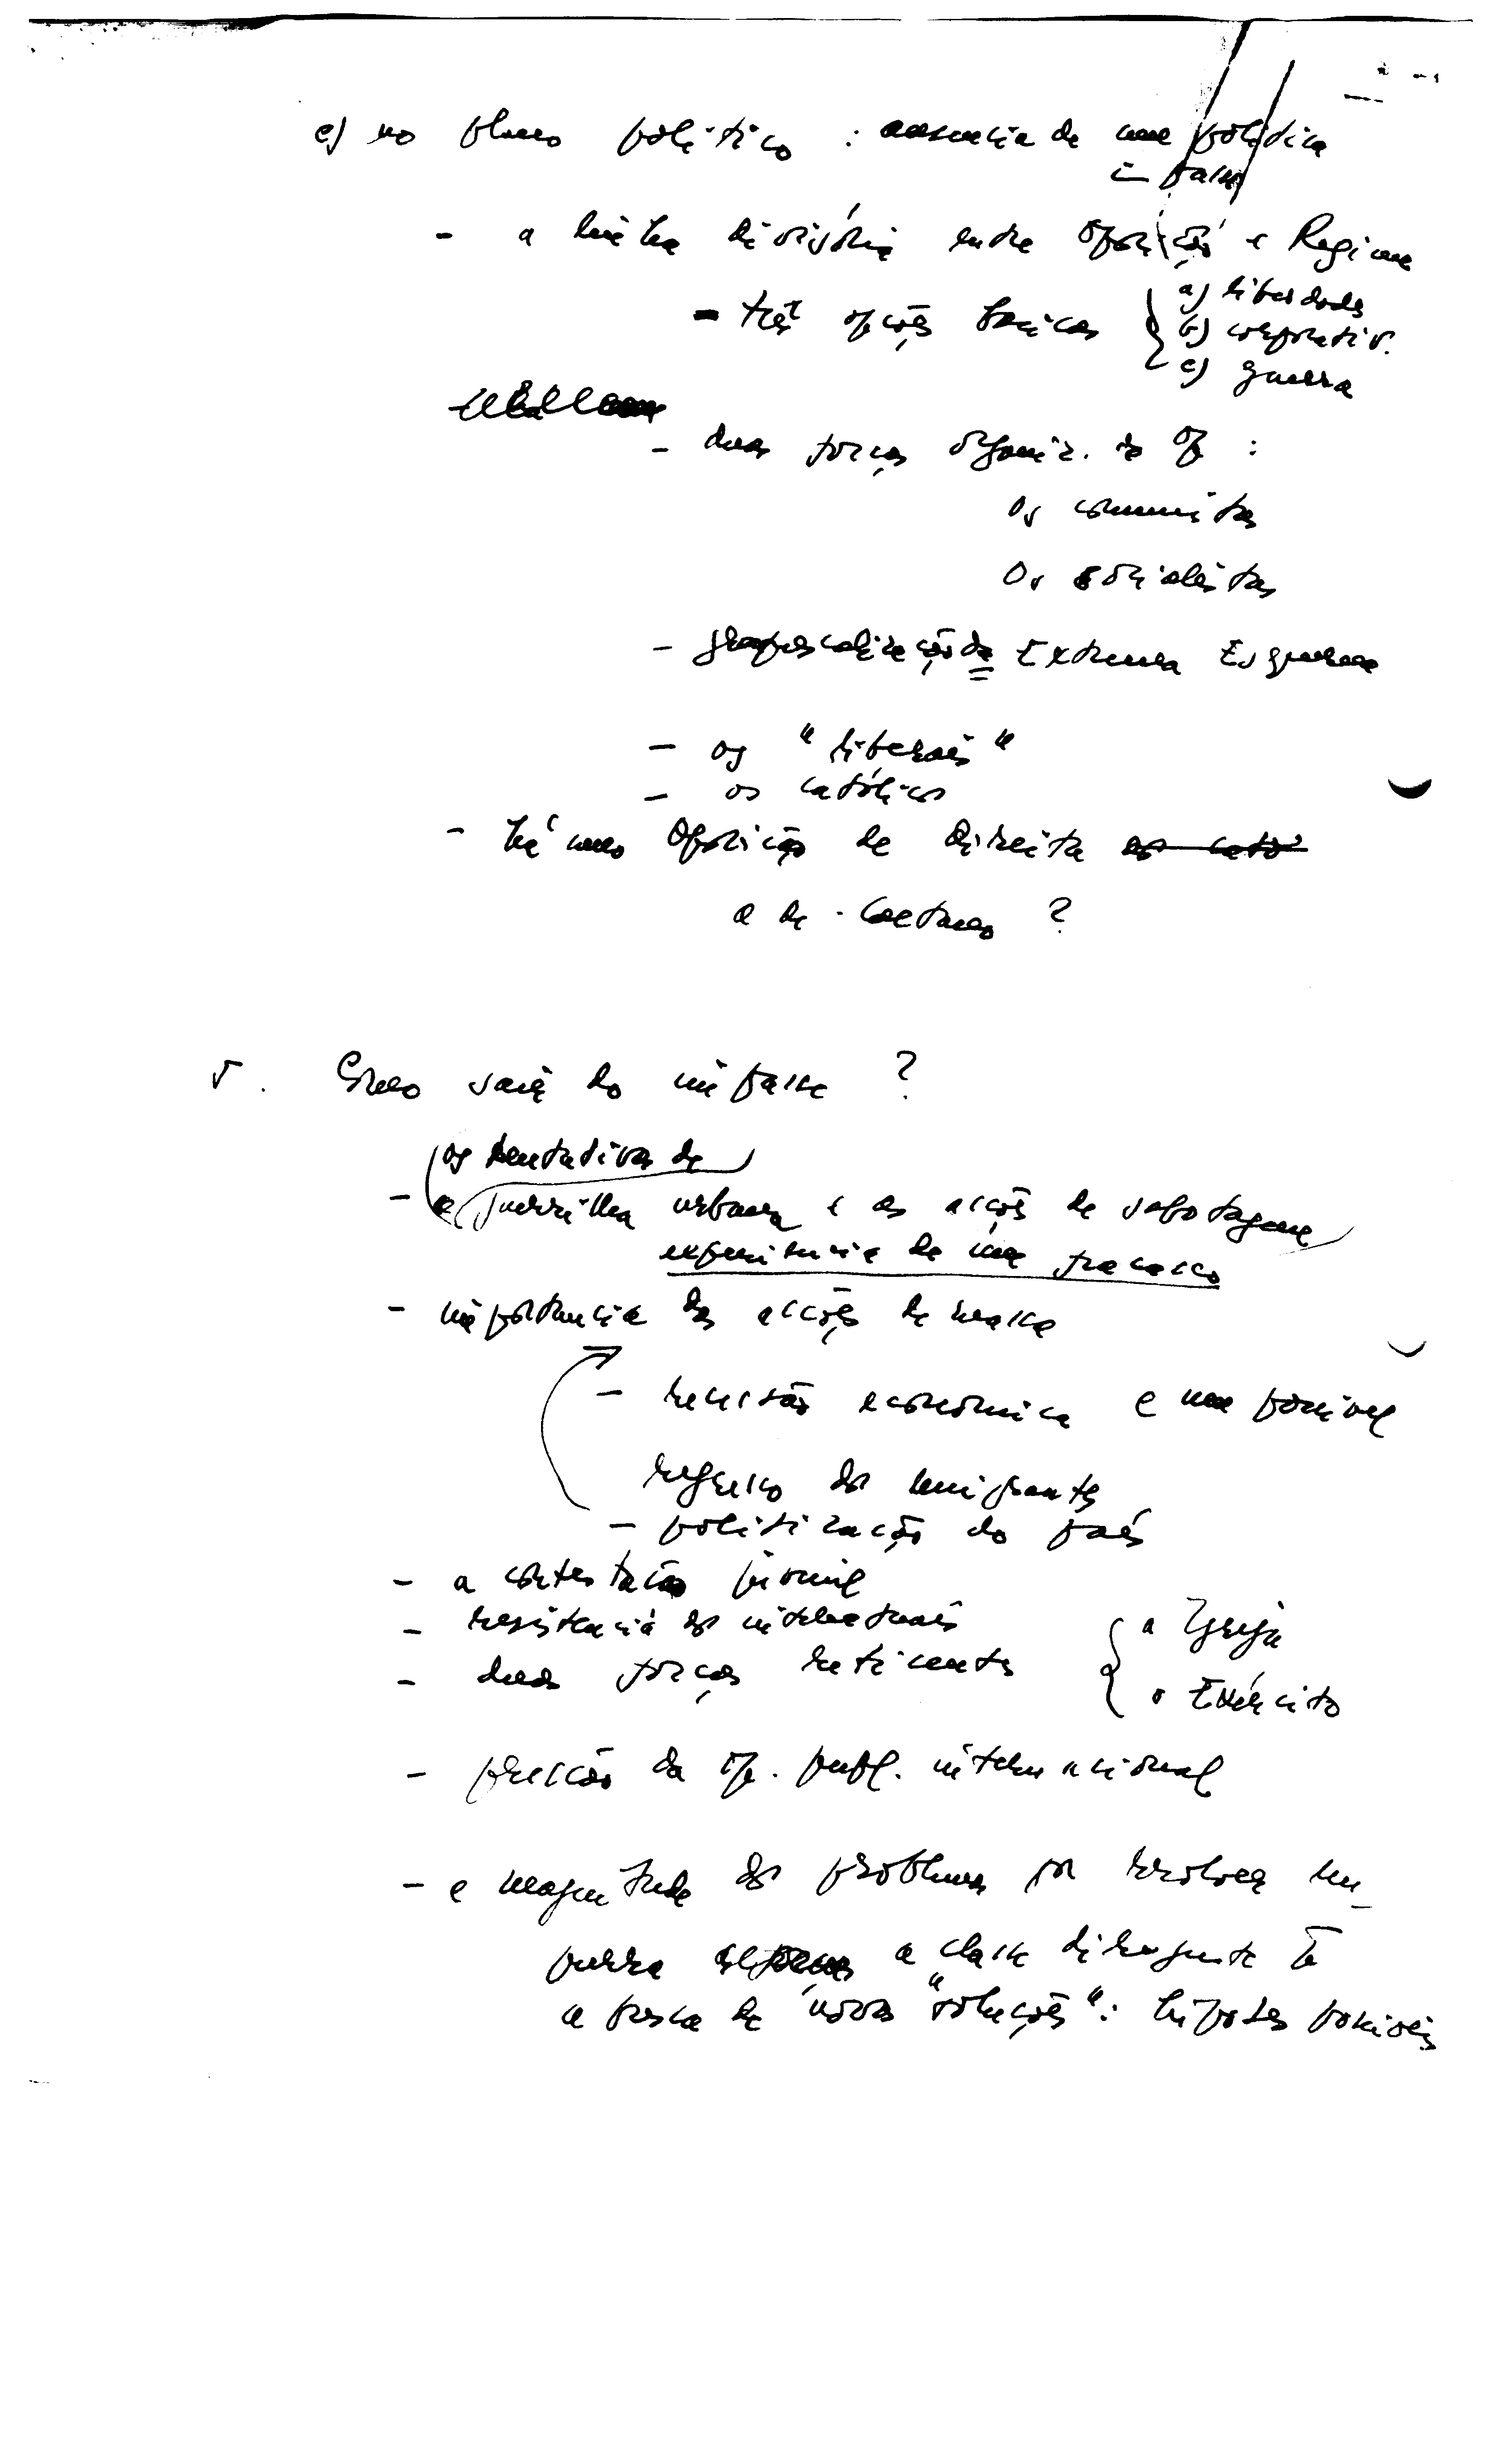 c) no plano político : ausencia de uma política
impasse
- a linha divisória entre Oposição e Regime
- três opções basicas
a) liberdade
b) corporativ.
c) guerra
- duas forças organiz. da Op :
Os comunistas
Os socialistas
- grupuscalização da Extrema Esquerda
- os "liberais"
- os católicos
- há uma Oposição de direita
a de Caetano ?
V. Como sair do impasse ?
as tentativas de
- a guerrilha urbana e as acções de sabotagem
experiencia de um fracasso
- importancia das acções de massa
- recessão economica e um possivel
regresso dos emigrantes
- politização do país
- a contestação juvenil
- resistencia dos intelectuais
- duas forças reticentes
a Igreja
o Exército
- pressão da op. publ. internacional
- a magnitude dos problemas por resolver em-
purra a classe dirigente à
a busca de novas "soluções": hipoteses possiveis